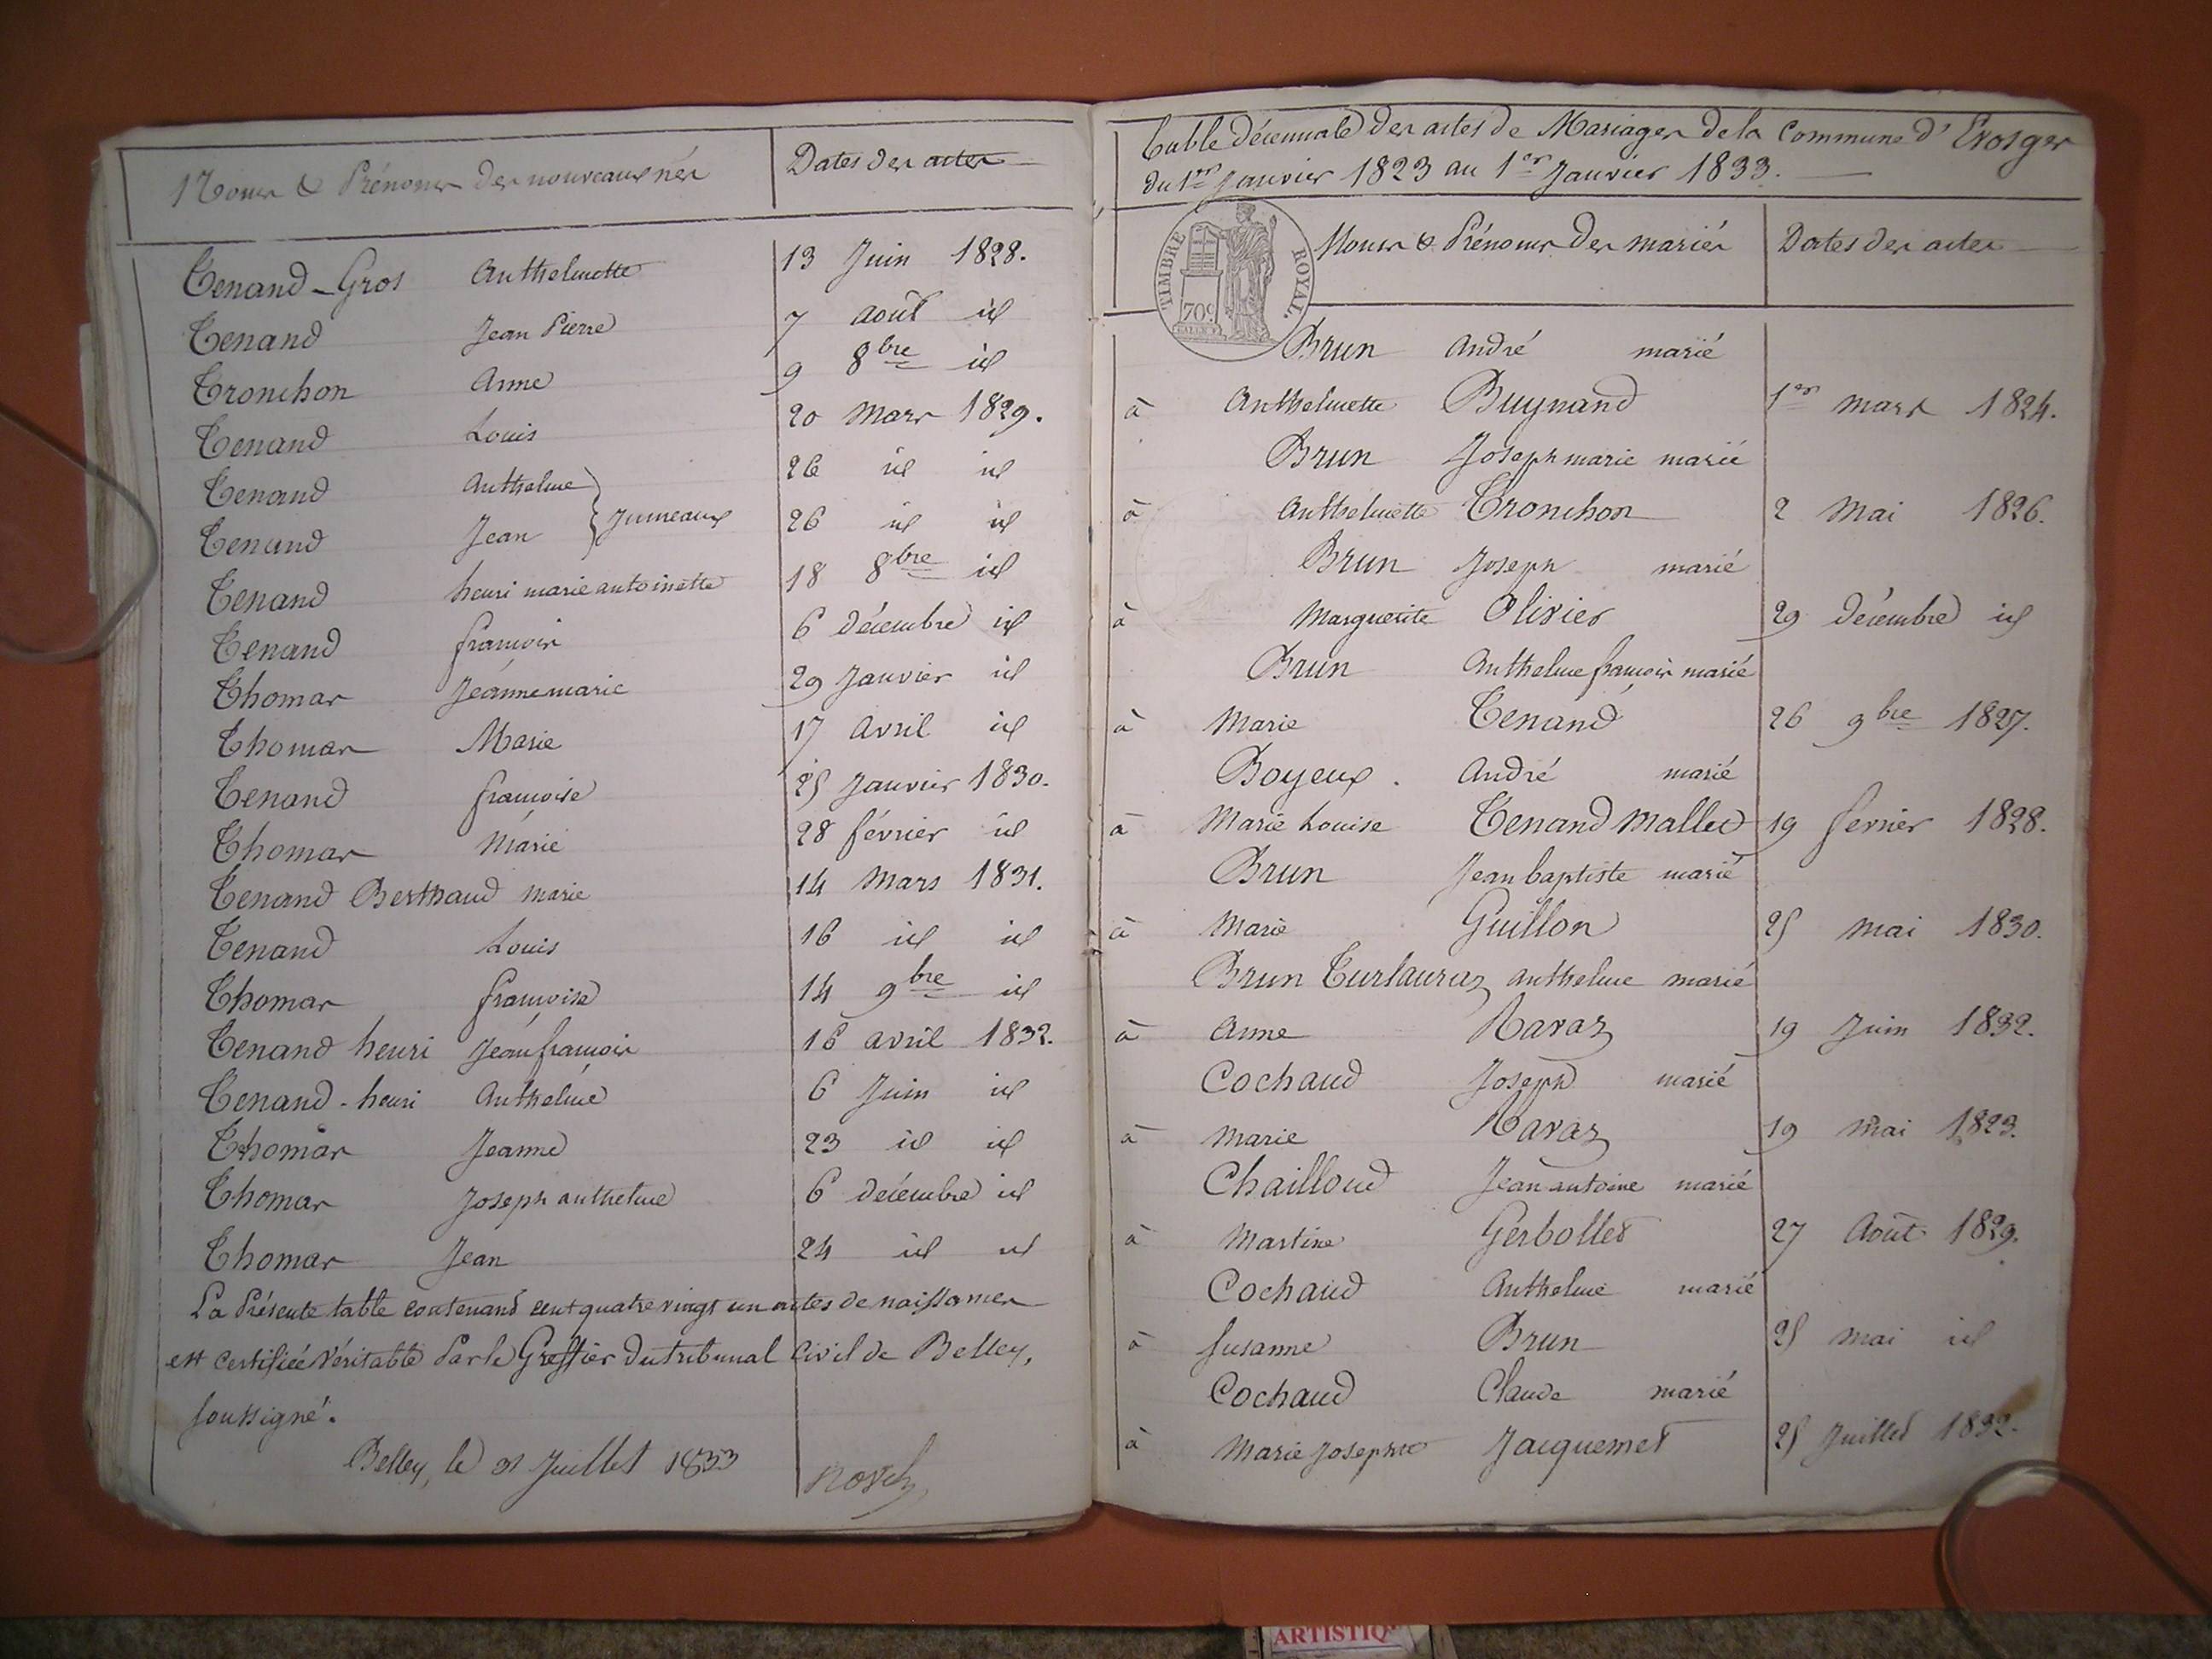 Noms & Prénoms des nouveaux nés
Dates des actes
Tenand-Gros Anthelmette 13 Juin 1828.
Tenand Jean Pierre 7 août id
Tronchon Anne 9 8bre id
Tenand Louis 20 Mars 1829.
Tenand Anthelme 26 id id
Tenand Jean } Jumeaux 26 id id
Tenand henri marie antoinette 18 8bre id
Tenand françois 6 décembre id
Thomas Jeanne marie 29 Janvier id
Thomas Marie 17 avril id
Tenand françoise 25 Janvier 1830.
Thomas Marie 28 février id
Tenand Berthaud Marie 14 Mars 1831.
Tenand Louis 16 id id
Thomas françoise 14 9bre id
Tenand henri Jean françois 16 avril 1832.
Tenand-henri Anthelme 6 Juin id
Thomas Jeanne 23 id id
Thomas Joseph anthelme 6 décembre id
Thomas Jean 24 id id
La Présente table contenant cent quatre vingt un actes de naissances
est certifiée Véritable Par le Greffier du tribunal Civil de Belley,
soussigné.
Belley, le 31 Juillet 1833
Table décennale des actes de Mariages de la Commune d'
du 1er Janvier 1823 au 1er Janvier 1833.
TIMBRE ROYAL.
70c
Noms & Prénoms des mariés
Dates des actes
Brun André marié
à Anthelmette Buynand 1er mars 1824.
Brun Joseph marie marié
à Anthelmette Tronchon 2 Mai 1826.
Brun Joseph marié
à Marguerite Olivier 29 décembre id
Brun Anthelme françois marié
à Marie Tenand 26 9bre 1827.
Boyeux . André marié
à Marie Louise Tenand Mallet 19 fevrier 1828.
Brun Jean baptiste marié
à Marie Guillon 25 mai 1830.
Brun Turlauraz anthelme marié
à Anne Ravaz 19 Juin 1832.
Cochaud Joseph marié
à Marie Ravaz 19 Mai 1823.
Chailloud Jean antoine marié
à Martine Gerbollet 27 Août 1829.
Cochaud Anthelme marié
à Susanne Brun 25 Mai id
Cochaud Claude marié
à Marie Josephte Jacquemet 25 Juillet 1832.
ARTISTIQ